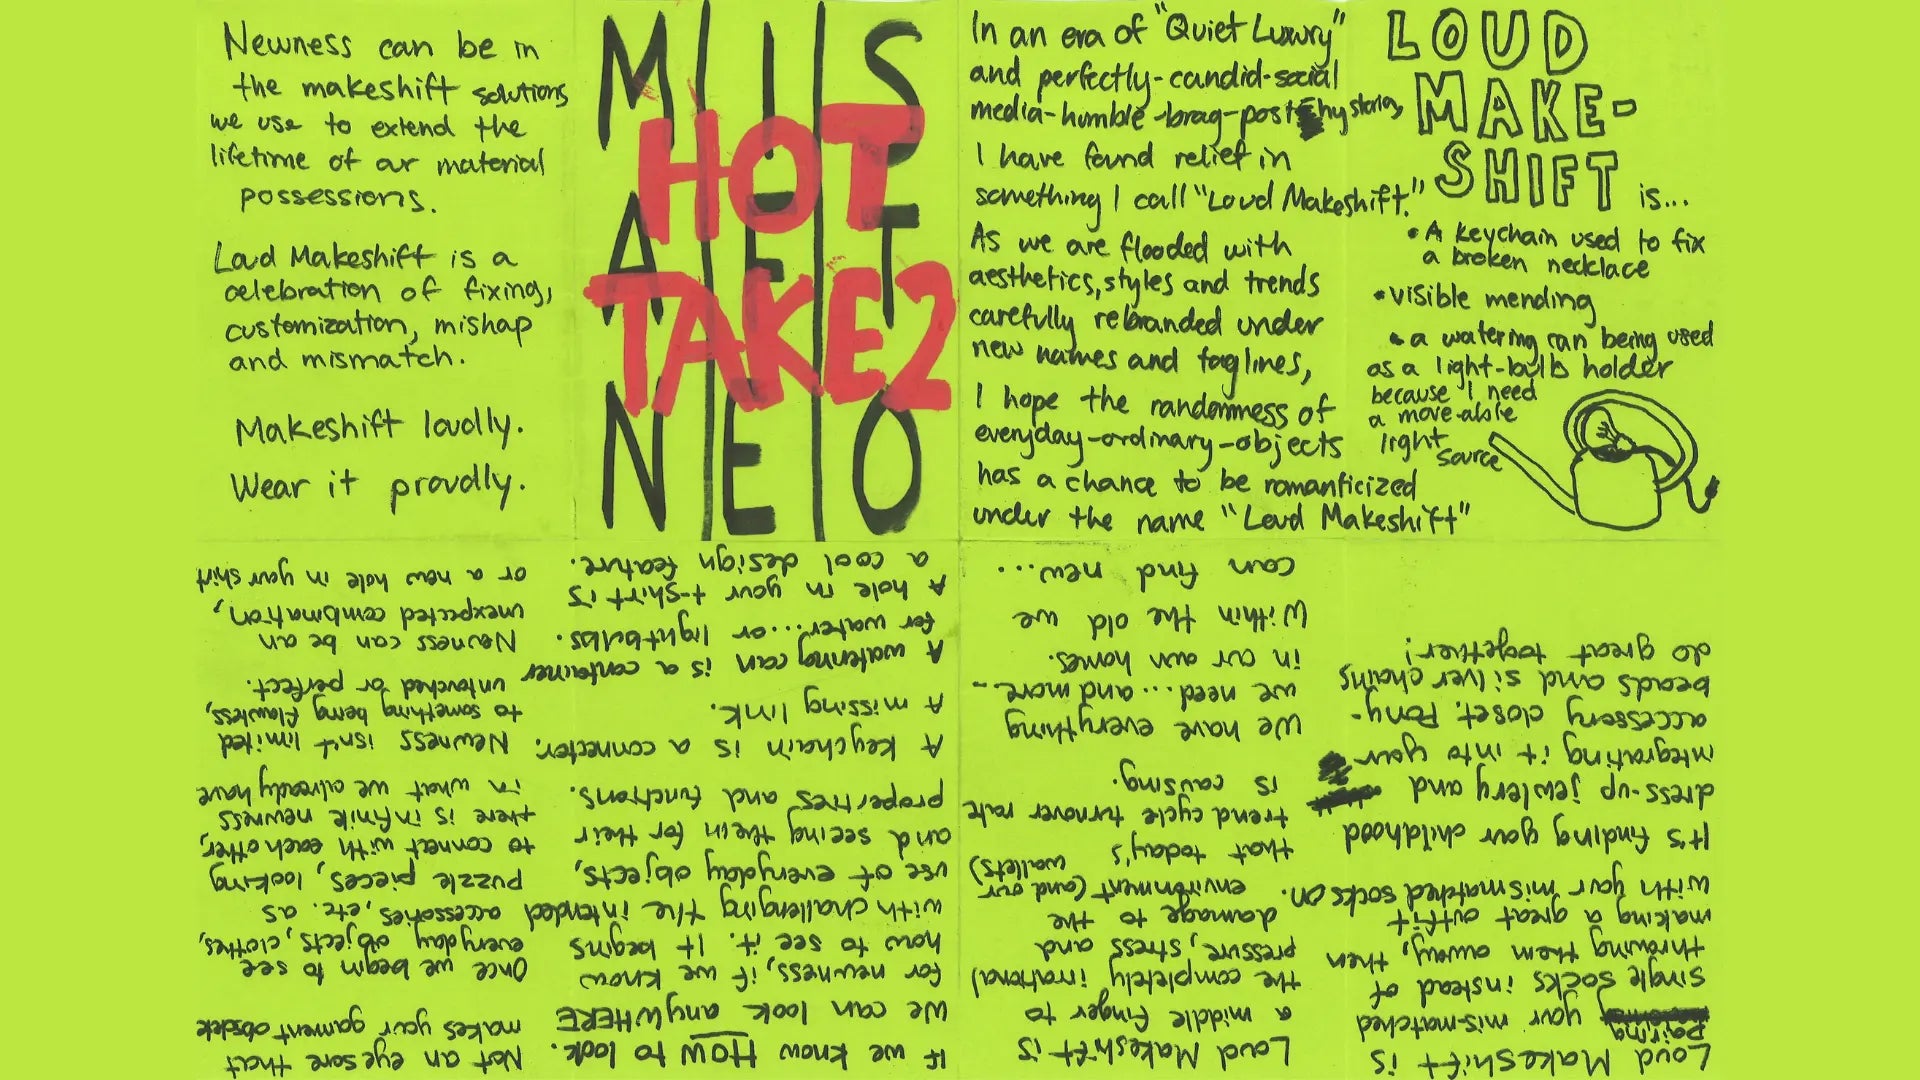 M I S
A F T
N E O
HOT
TAKE 2
In an era of "Quiet Luxury"
and perfectly-candid-social
media-humble-brag-post
stories,
I have found relief in
something I call "Loud Makeshift."
As we are flooded with
aesthetics, styles and trends
carefully rebranded under
new names and taglines,
I hope the randomness of
everyday-ordinary-objects
has a chance to be romanticized
under the name "Loud Makeshift"
LOUD
MAKE-
SHIFT is...
• A keychain used to fix
a broken necklace
• visible mending
• a watering can being used
as a light-bulb holder
because I need
a move-able
light
source
Loud Makeshift is
pairing your mis-matched
single socks instead of
throwing them away, then
making a great outfit
with your mismatched socks on.
It's finding your childhood
dress-up jewlery and
integrating it into your
accessory closet. Pony-
beads and silver chains
do great together!
Loud Makeshift is
a middle finger to
the completely irrational
pressure, stress, and
damage to the
environment (and our
wallets)
that today's
trend cycle turnover rate
is causing.
We have everything
we need... and more...
in our own homes.
Within the old we
can find new...
If we know HOW to look.
We can look anyWHERE
for newness, if we know
how to see it. It begins
with challenging the intended
use of everyday objects,
and seeing them for their
properties and functions.
A keychain is a connector.
A missing link.
A watering can is a container
for water...or lightbulbs.
A hole in your t-shirt is
a cool design feature.
Not an eyesore that
makes your garment obsolete
Once we begin to see
everyday objects, clothes,
accessories, etc. as
puzzle pieces, looking
to connect with each other,
there is infinite newness
in what we already have
Newness isn't limited
to something being flawless,
untouched or perfect.
Newness can be an
unexpected combination,
or a new hole in your shirt
Newness can be in
the makeshift solutions
we use to extend the
lifetime of our material
possessions.
Loud Makeshift is a
celebration of fixing,
customization, mishap
and mismatch.
Makeshift loudly.
Wear it proudly.